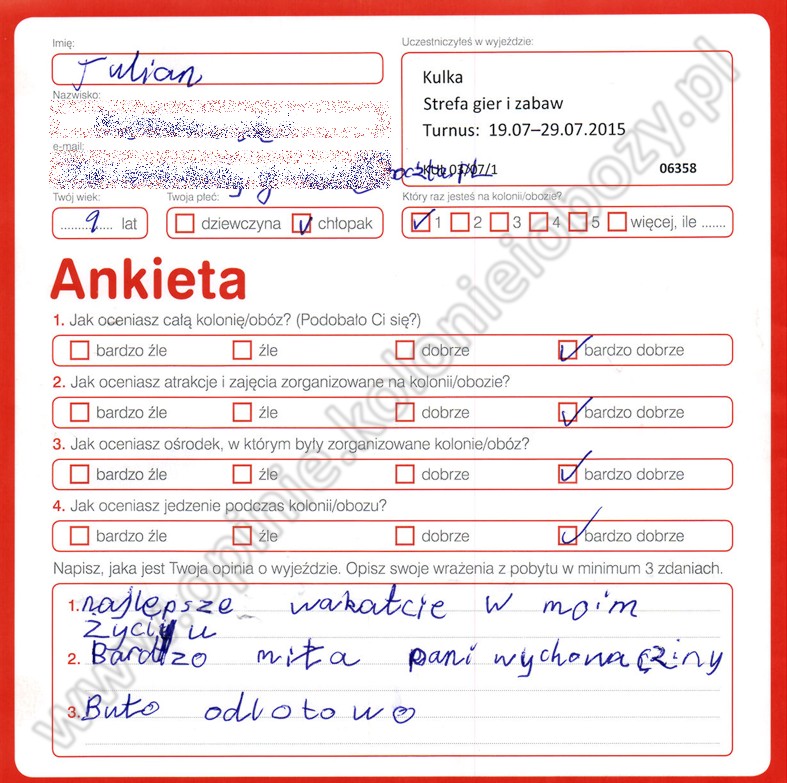 Imię:
Julian
Uczestniczyłeś w wyjeździe:
Kulka
Strefa gier i zabaw
Turnus: 19.07–29.07.2015
06358
Nazwisko:
e-mail:
Twój wiek:
9 lat
Twoja płeć:
dziewczyna chłopak
Który raz jesteś na kolonii/obozie?
1 2 3 4 5 więcej, ile .......
Ankieta
1. Jak oceniasz całą kolonię/obóz? (Podobało Ci się?)
bardzo źle źle dobrze bardzo dobrze
2. Jak oceniasz atrakcje i zajęcia zorganizowane na kolonii/obozie?
bardzo źle źle dobrze bardzo dobrze
3. Jak oceniasz ośrodek, w którym były zorganizowane kolonie/obóz?
bardzo źle źle dobrze bardzo dobrze
4. Jak oceniasz jedzenie podczas kolonii/obozu?
bardzo źle źle dobrze bardzo dobrze
Napisz, jaka jest Twoja opinia o wyjeździe. Opisz swoje wrażenia z pobytu w minimum 3 zdaniach.
1. najlepsze wakatcie w moim
życiu
2. Bardzo miła pani
3. Buło odlotowo
www.opinie.kolonieiobozy.pl